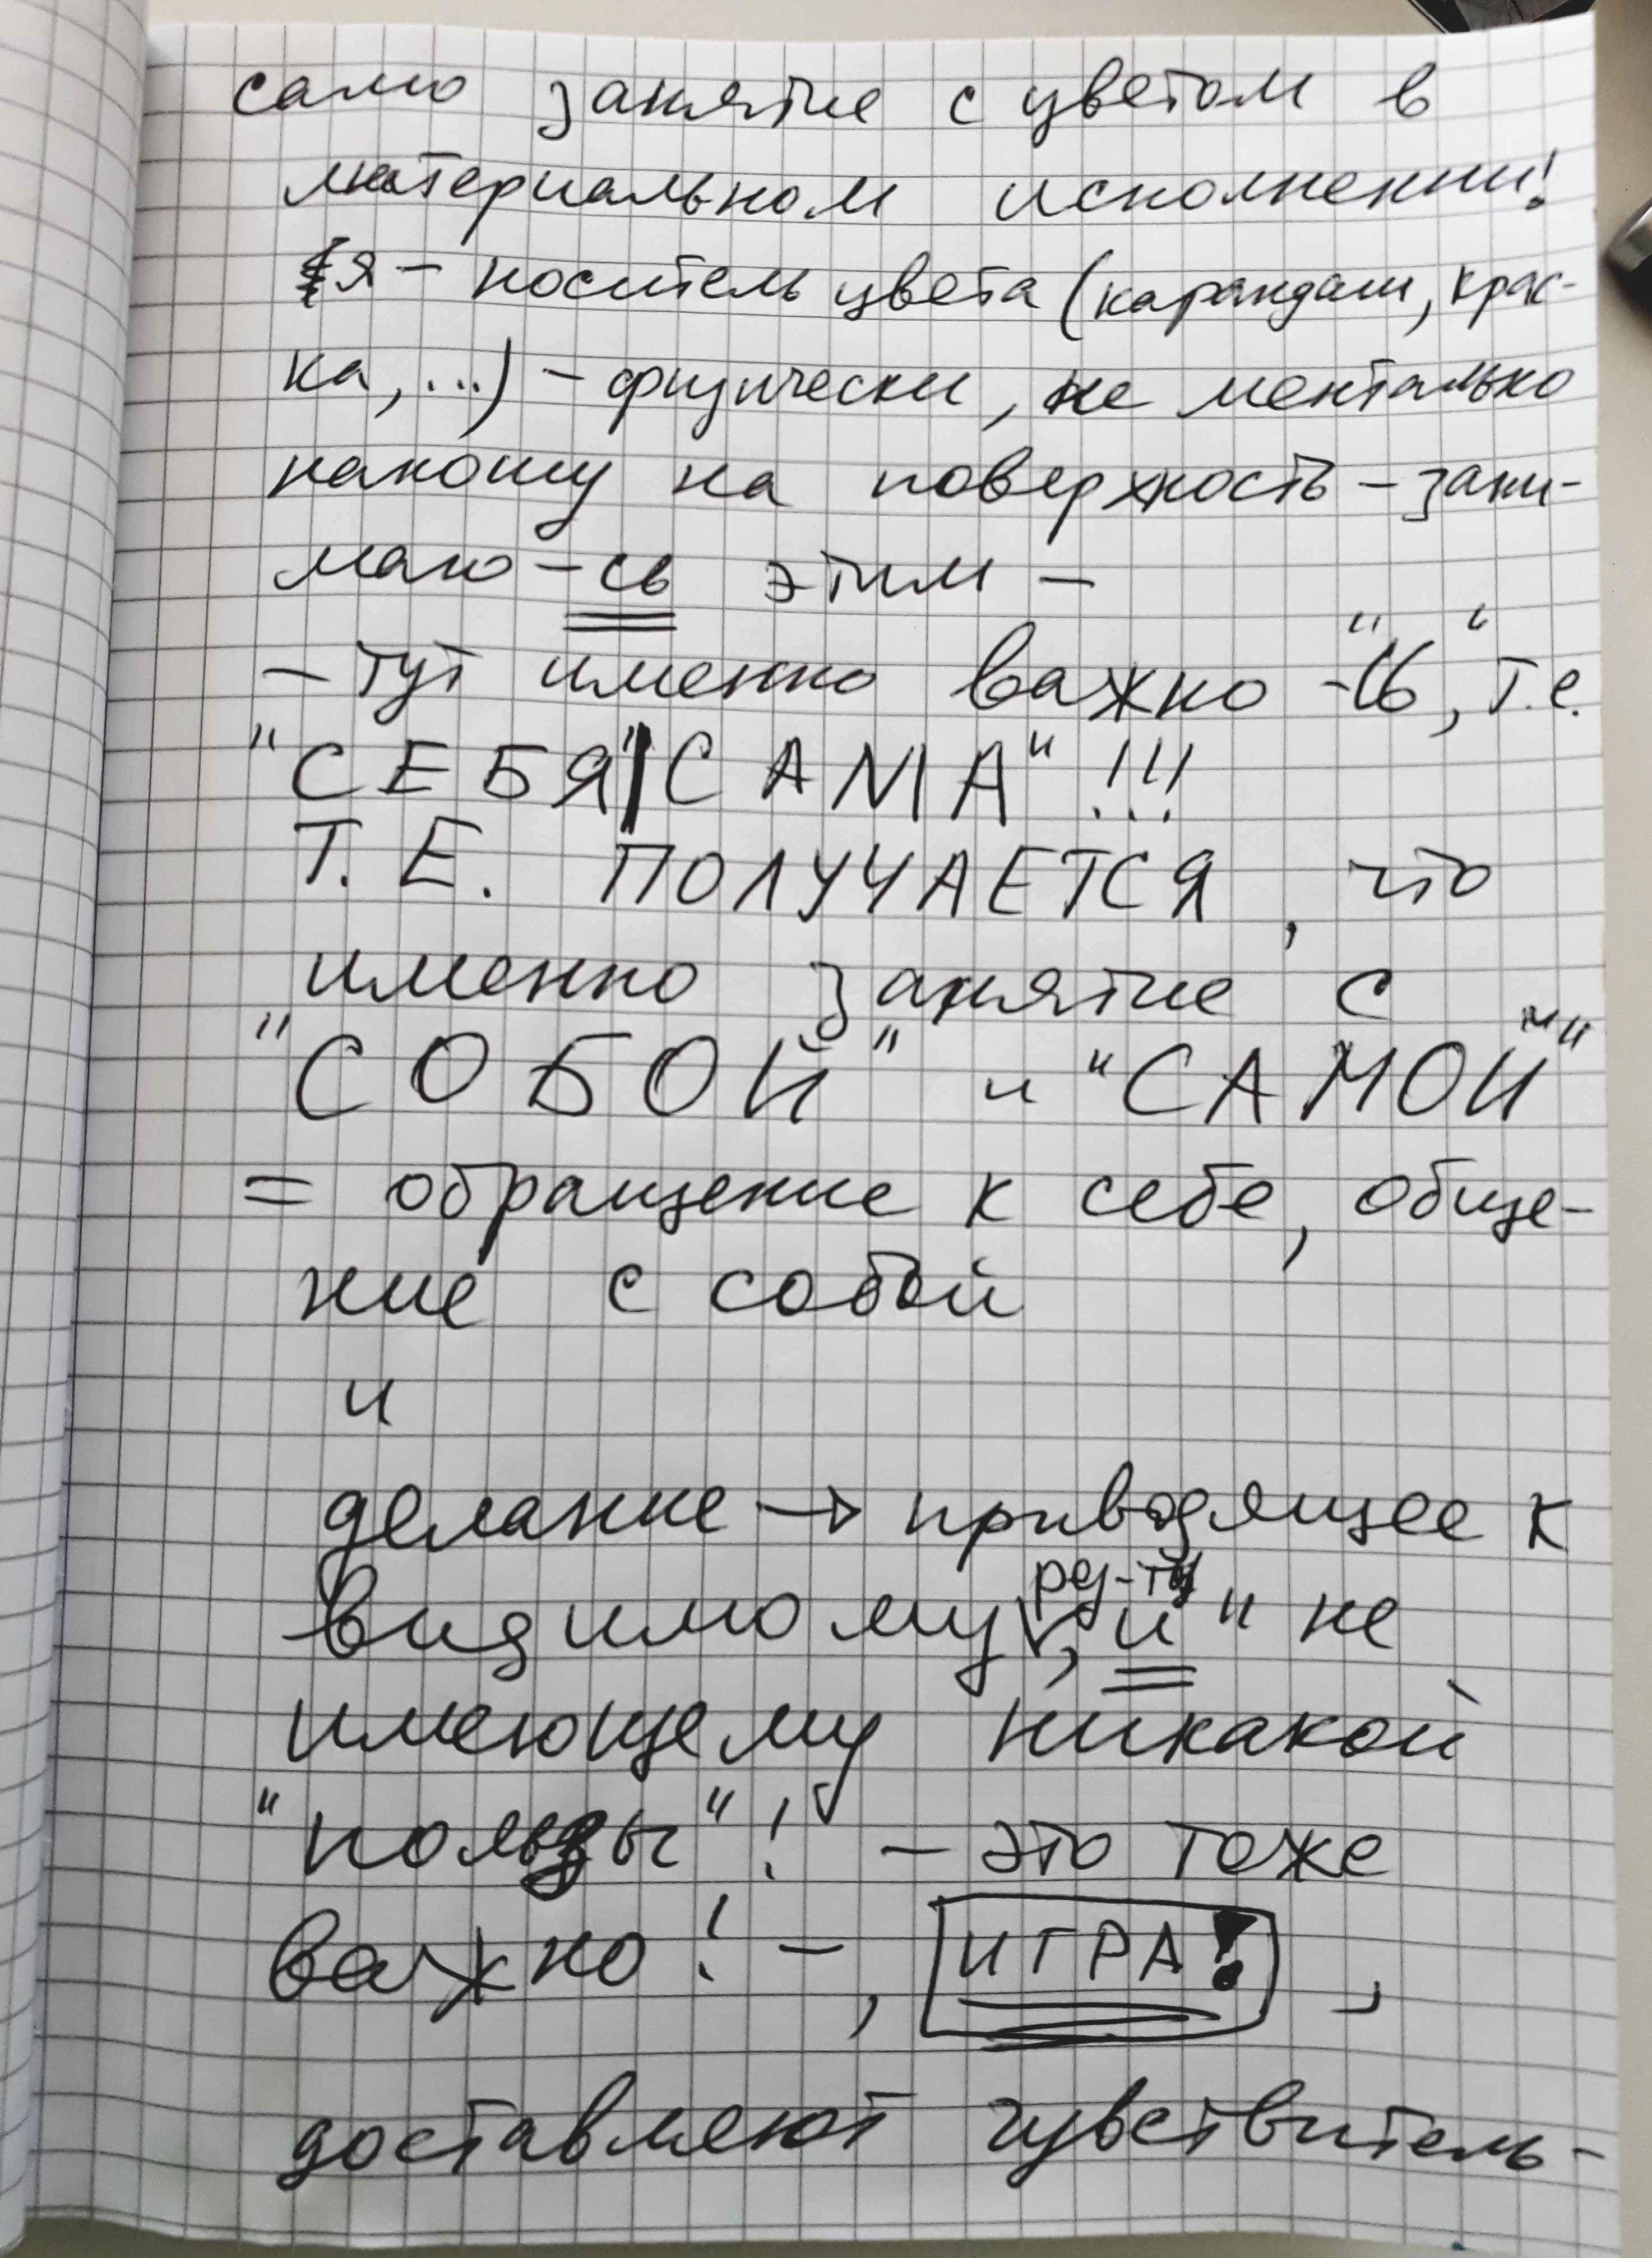 само занятие с цветом в
материальном исполнении!
я – носитель цвета (карандаш, крас-
ка, ...) – физически, не ментально
наношу на поверхность – зани-
маю -сь этим –
– тут именно важно "-сь", т.е.
"СЕБЯ"|САМА" !!!
Т.Е. ПОЛУЧАЕТСЯ, что
именно занятие с
"СОБОЙ" и "САМОЙ"
= обращение к себе, обще-
ние с собой
и
делание → приводящее к
видимому рез-ту, и " не
имеющему никакой
"пользы"! – это тоже
важно! – , ИГРА! ,
доставляют чувствитель-